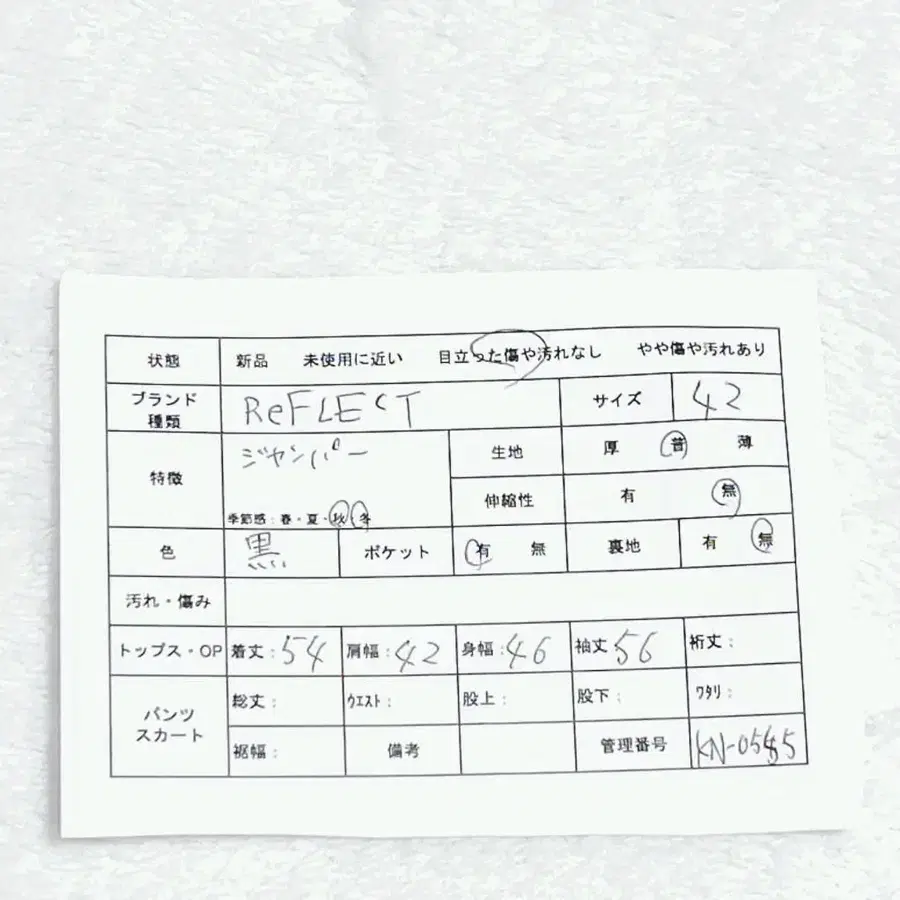 状態 新品 未使用に近い 目立った傷や汚れなし やや傷や汚れあり
ブランド種類 ReFLECT サイズ 42
特徴 ジャンパー 生地 厚 普 薄
季節感：春・夏・秋・冬 伸縮性 有 無
色 黒 ポケット 有 無 裏地 有 無
汚れ・傷み
トップス・OP 着丈：54 肩幅：42 身幅：46 袖丈 56 裄丈：
パンツ スカート 総丈： ウエスト： 股上： 股下： ワタリ：
裾幅： 備考 管理番号